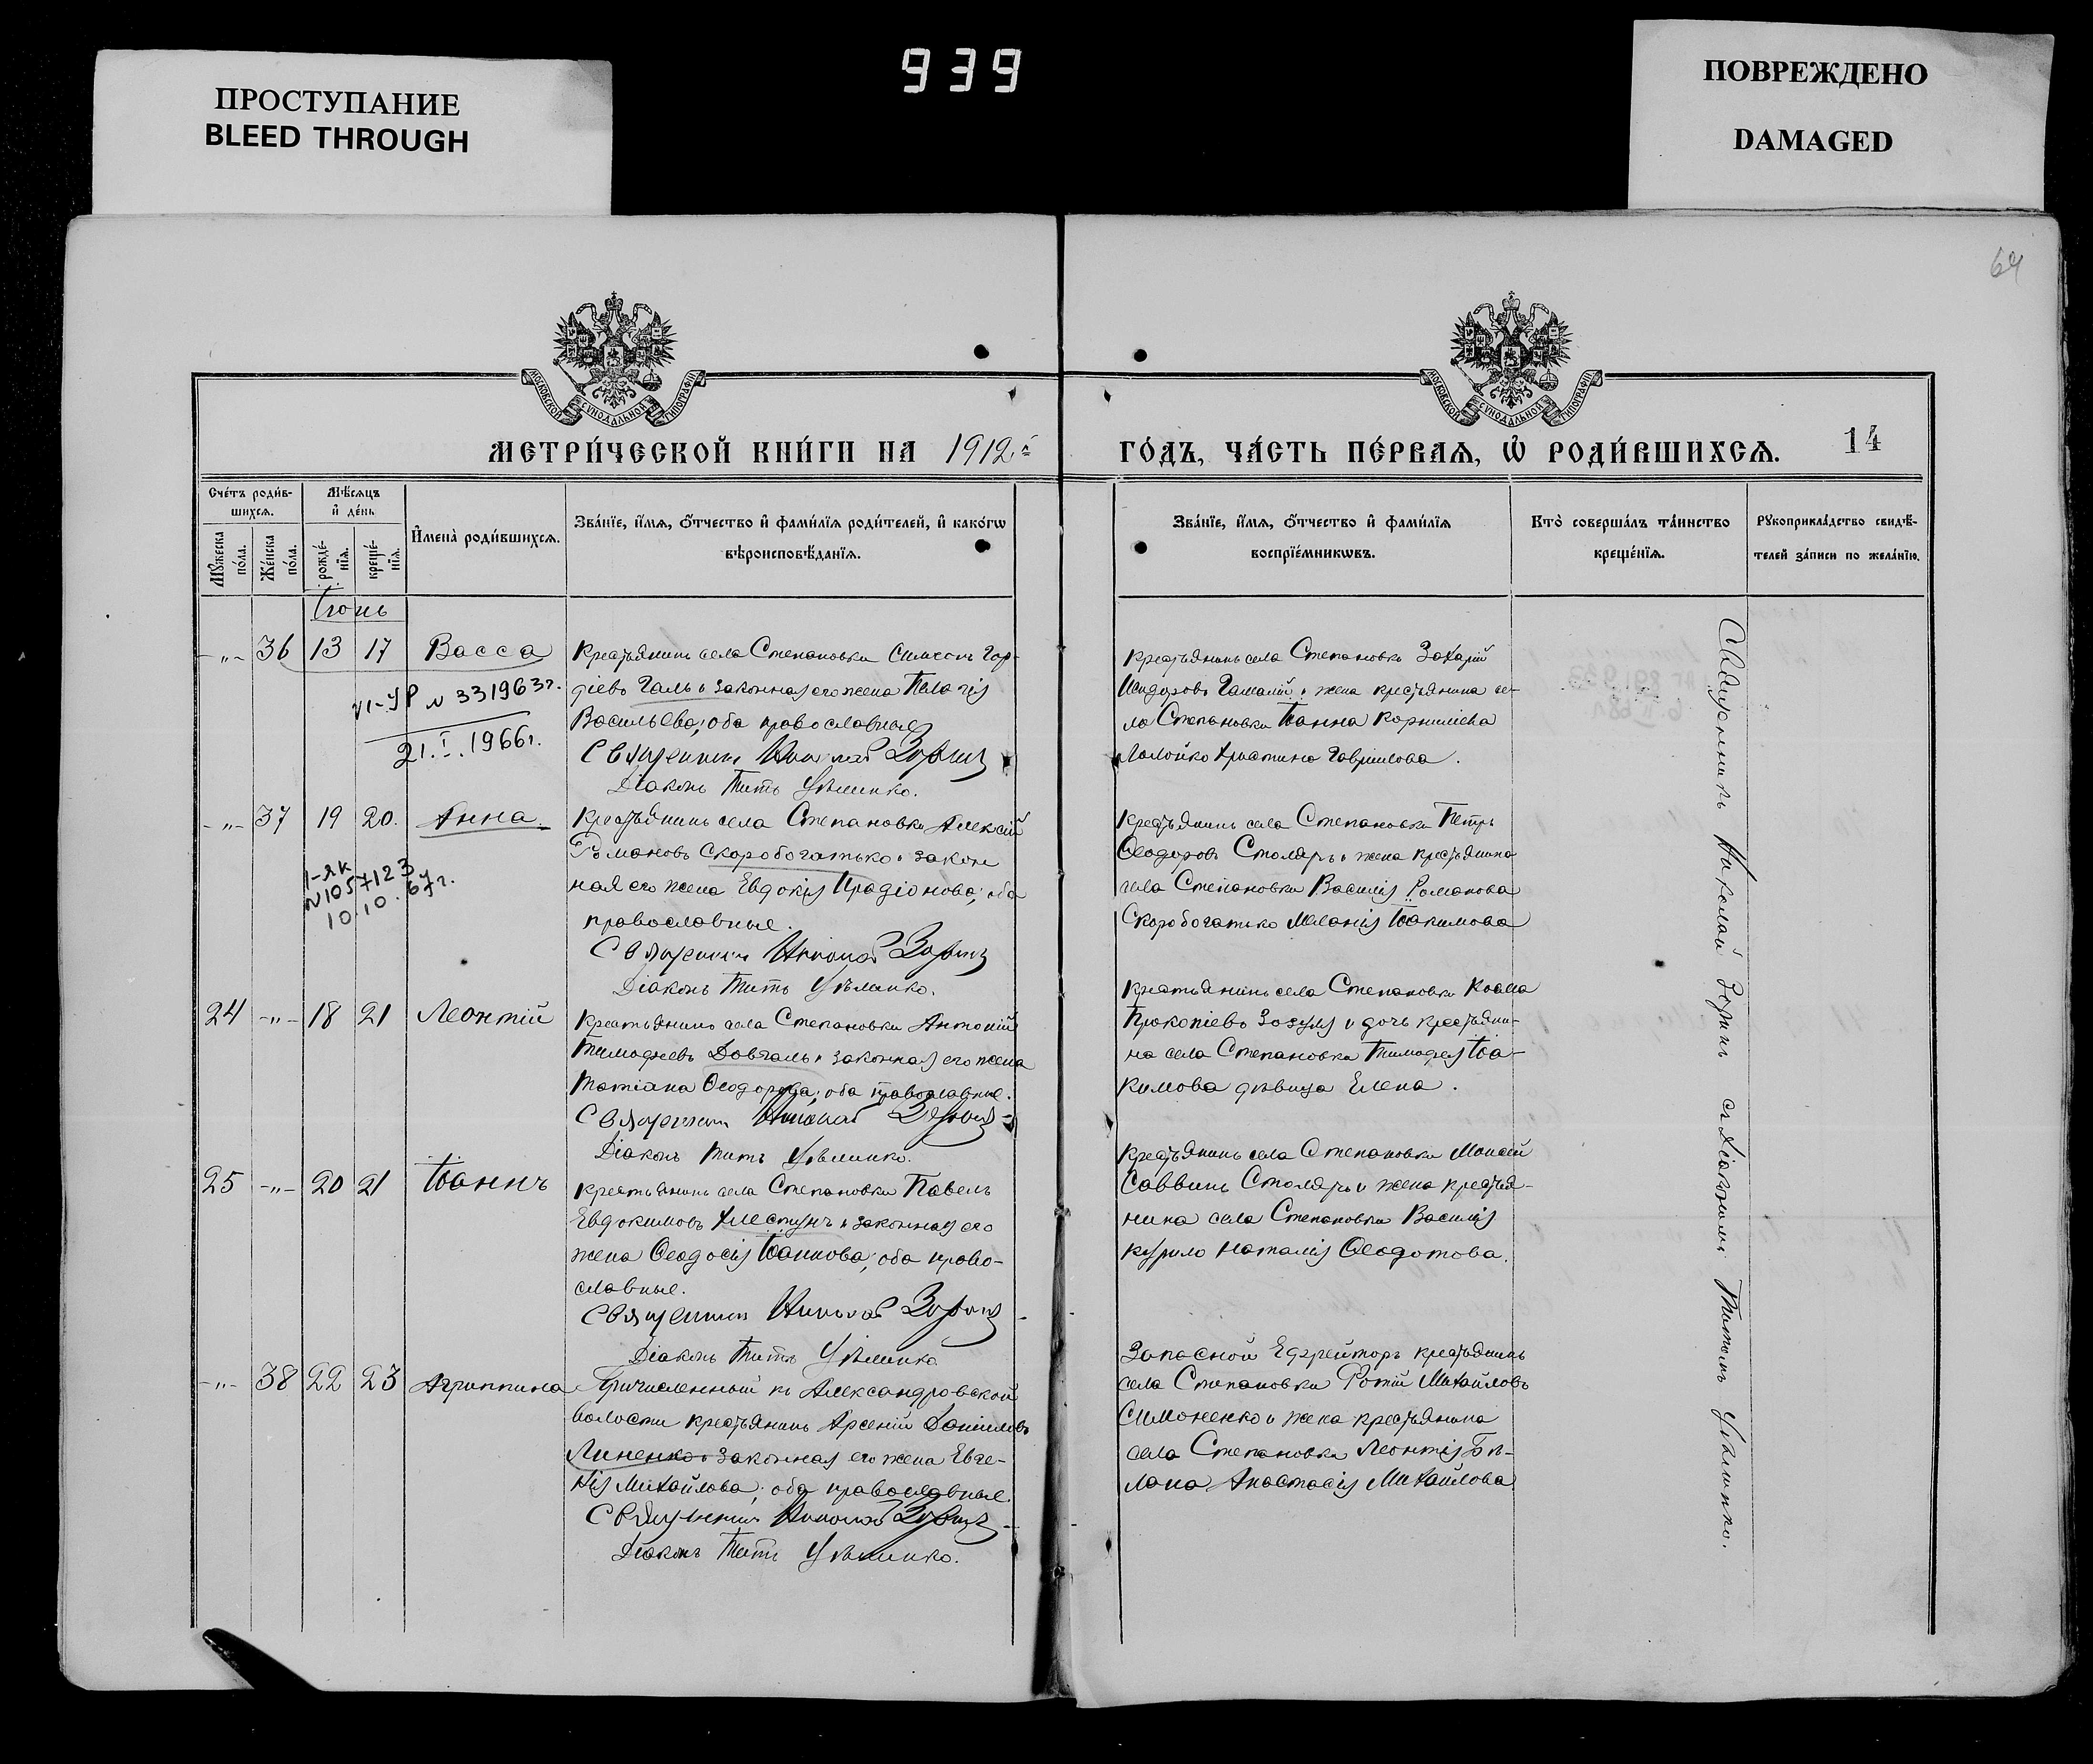 ПРОСТУПАНИЕ
BLEED THROUGH
939
ПОВРЕЖДЕНО
DAMAGED
64
МОСКОВСКОЙ СѴНОДАЛЬНОЙ ТИПОГРАФІИ
МОСКОВСКОЙ СѴНОДАЛЬНОЙ ТИПОГРАФІИ
МЕТРИ́ЧЕСКОЙ КНИ́ГИ НА 1912й
ГО́ДЪ, ЧА́СТЬ ПЕ́РВАѦ, Ѡ҆ РОДИ́ВШИХСѦ.
14
Сче́тъ роди́в-
шихсѧ.
Мѣ́сѧцъ
и҆ де́нь
Мꙋ́жеска по́ла.
Же́нска по́ла.
рожде́-
нїѧ.
креще́-
нїѧ.
И҆мена̀ роди́вшихсѧ.
Зва́нїе, и҆́мѧ, ѻ҆́тчество и҆ фами́лїѧ роди́телей, и҆ како́гѡ
вѣроисповѣ́данїѧ.
Зва́нїе, и҆́мѧ, ѻ҆́тчество и҆ фами́лїѧ
воспрїе́мникѡвъ.
Кто̀ соверша́лъ та́инство
креще́нїѧ.
Рꙋкоприкла́дство свидѣ́-
телей за́писи по жела́нїю.
Іюнь
-"- 36 13 17 Васса
Крестьянинъ села Степановки Симеонъ Гор-
діевъ Галь и законная его жена Пелагія
Васильева; оба православные
Священникъ Николай Зоринъ
Діаконъ Титъ
VI-УР № 331963 г.
21.I.1966 г.
Крестьянинъ села Степановки Захарій
Исидоровъ Гамалій и жена крестьянина се-
ла Степановки Іоанна Корнилиева
Христина Гавріилова.
-"- 37 19 20. Анна.
Крестьянинъ села Степановки Алексій
Романовъ Скоробогатько и закон
ная его жена Евдокія Иродіонова; оба
православные.
Священникъ Николай Зоринъ
Діаконъ Титъ
I-ЯК
№1057123
10.10.67 г.
Крестьянинъ села Степановки Петръ
Ѳеодоровъ Столяръ и жена крестьянина
села Степановки Василія Романова
Скоробогатько Меланія Іоакимова
24 -"- 18 21 Леонтій
Крестьянинъ села Степановки Антоній
Тимофеевъ Довгаль и законная его жена
Татіана Ѳеодорова; оба православные.
Священникъ Николай Зоринъ
Діаконъ Титъ
Крестьянинъ села Степановки Косма
Прокопіевъ Зозуля и дочь крестьяни-
на села Степановки Тимофея Іоа-
кимова девица Елена.
25 -"- 20 21 Іоаннъ
Крестьянинъ села Степановки Павелъ
Евдокимовъ Хлестунъ и законная его
жена Ѳеодосія Іоаннова; оба право-
славные.
Священникъ Николай Зоринъ
Діаконъ Титъ
Крестьянинъ села Степановки Моисей
Саввинъ Столяръ и жена крестья-
нина села Степановки Василія
Курило Наталія Ѳеодотова.
-"- 38 22 23 Агриппина
Причисленный къ Александровской
волости крестьянинъ Арсеній Даниловъ
Линенко и законная его жена Евге-
нія Михайлова; оба православные.
Священникъ Николай Зоринъ
Діаконъ Титъ
Запасной Ефрейторъ крестьянинъ
села Степановки Фотій Михайловъ
Симоненко и жена крестьянина
села Степановки Леонтія Бѣ-
лана Анастасія Михайлова
Священникъ Николай Зоринъ съ діакономъ Титомъ